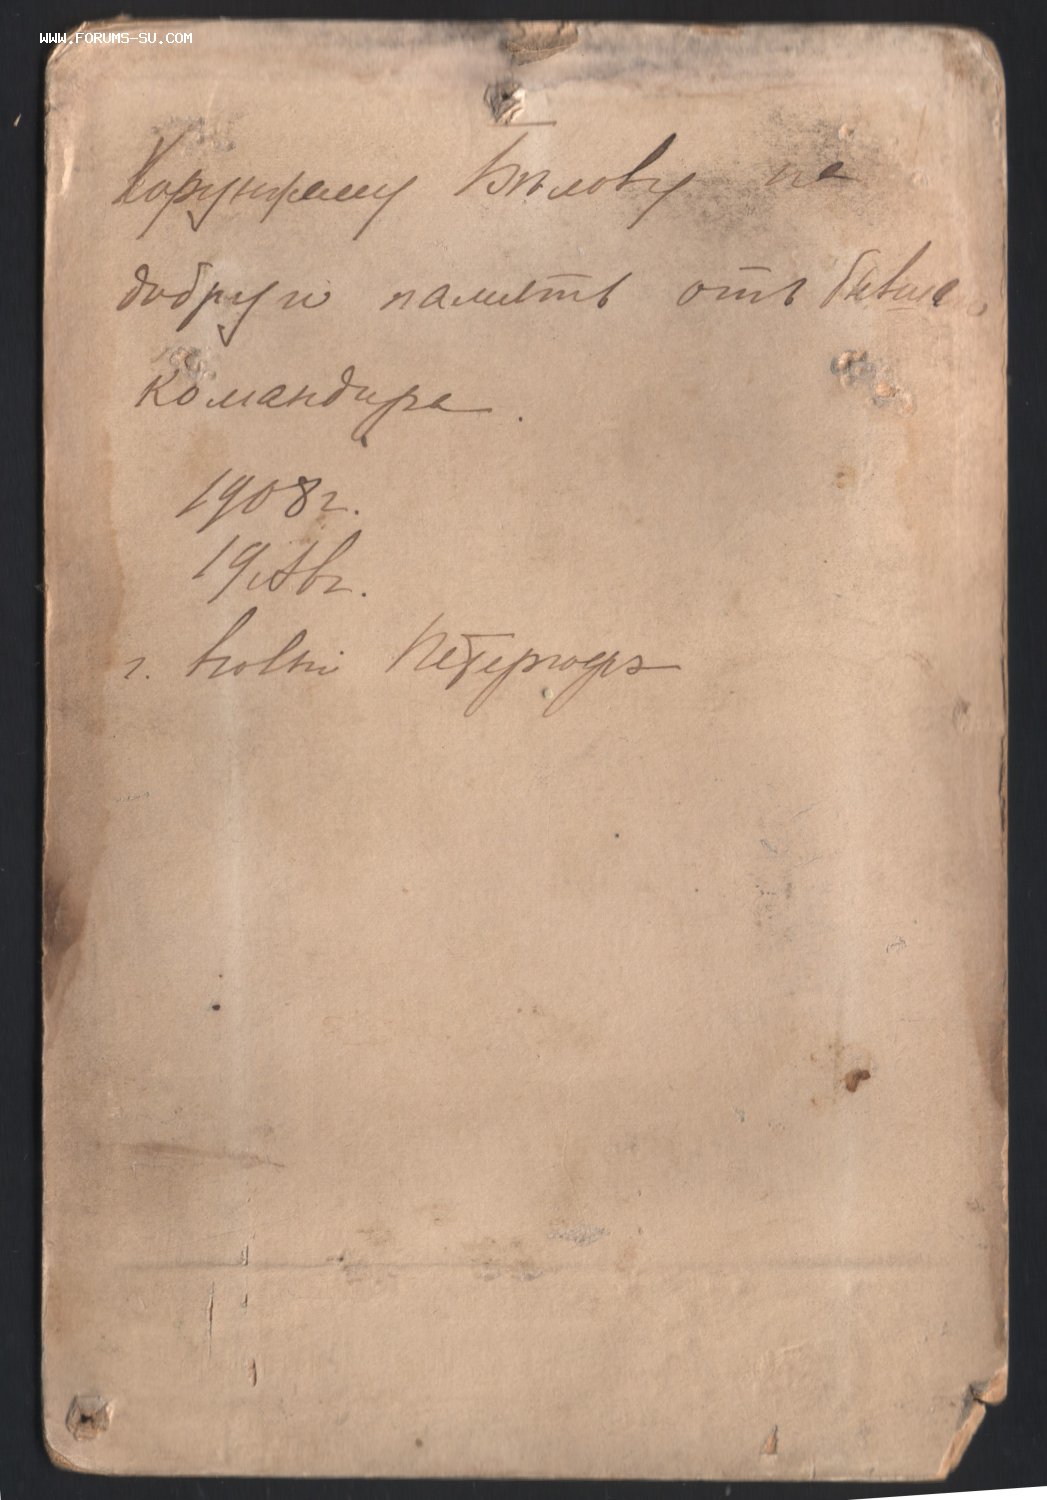 WWW.FORUMS-SU.COM
Хорунжему Бѣлову на
добрую память отъ бывша
командира.
1908 г.
19 Авг.
г. Новый Петергофъ